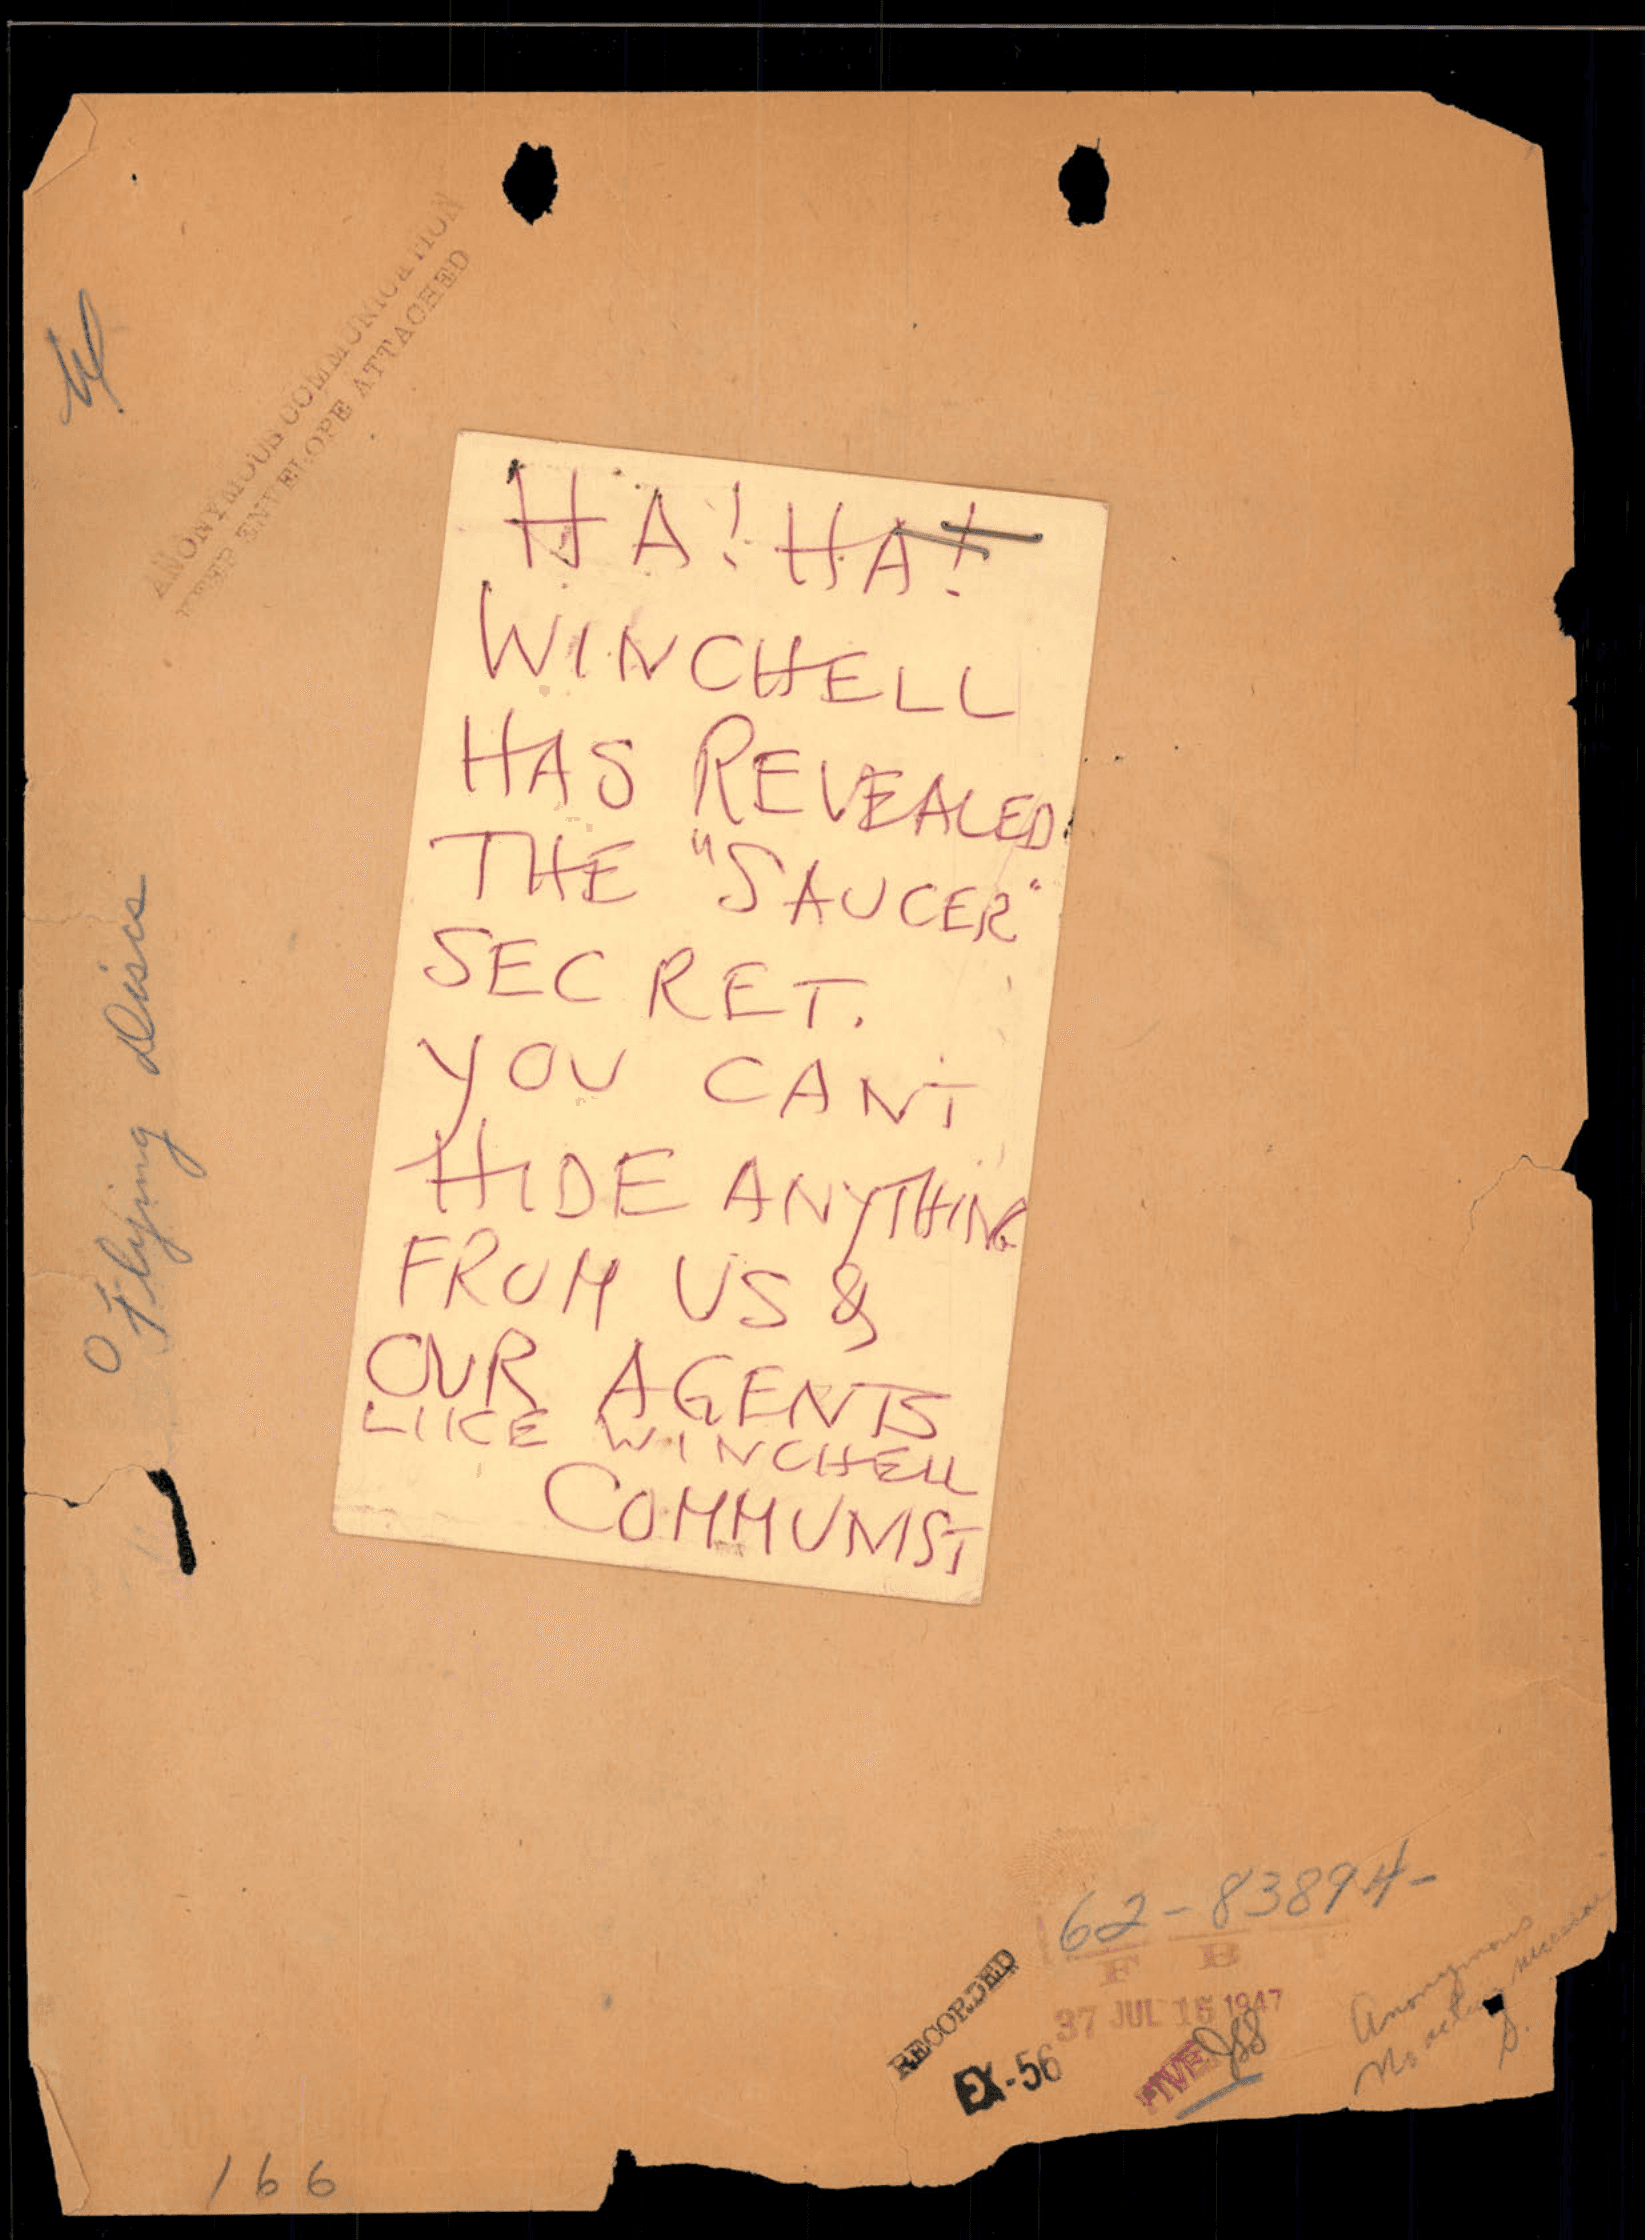 ANONYMOUS COMMUNICATION
KEEP ENVELOPE ATTACHED
HA! HA!
WINCHELL
HAS REVEALED
THE "SAUCER"
SECRET.
YOU CAN'T
HIDE ANYTHING
FROM US &
OUR AGENTS
LIKE WINCHELL
COMMUNIST
Flying Discs
62-83894-
F B I
37 JUL 15 1947
RECORDED
EX-56
FIVE
Anonymous
No
166